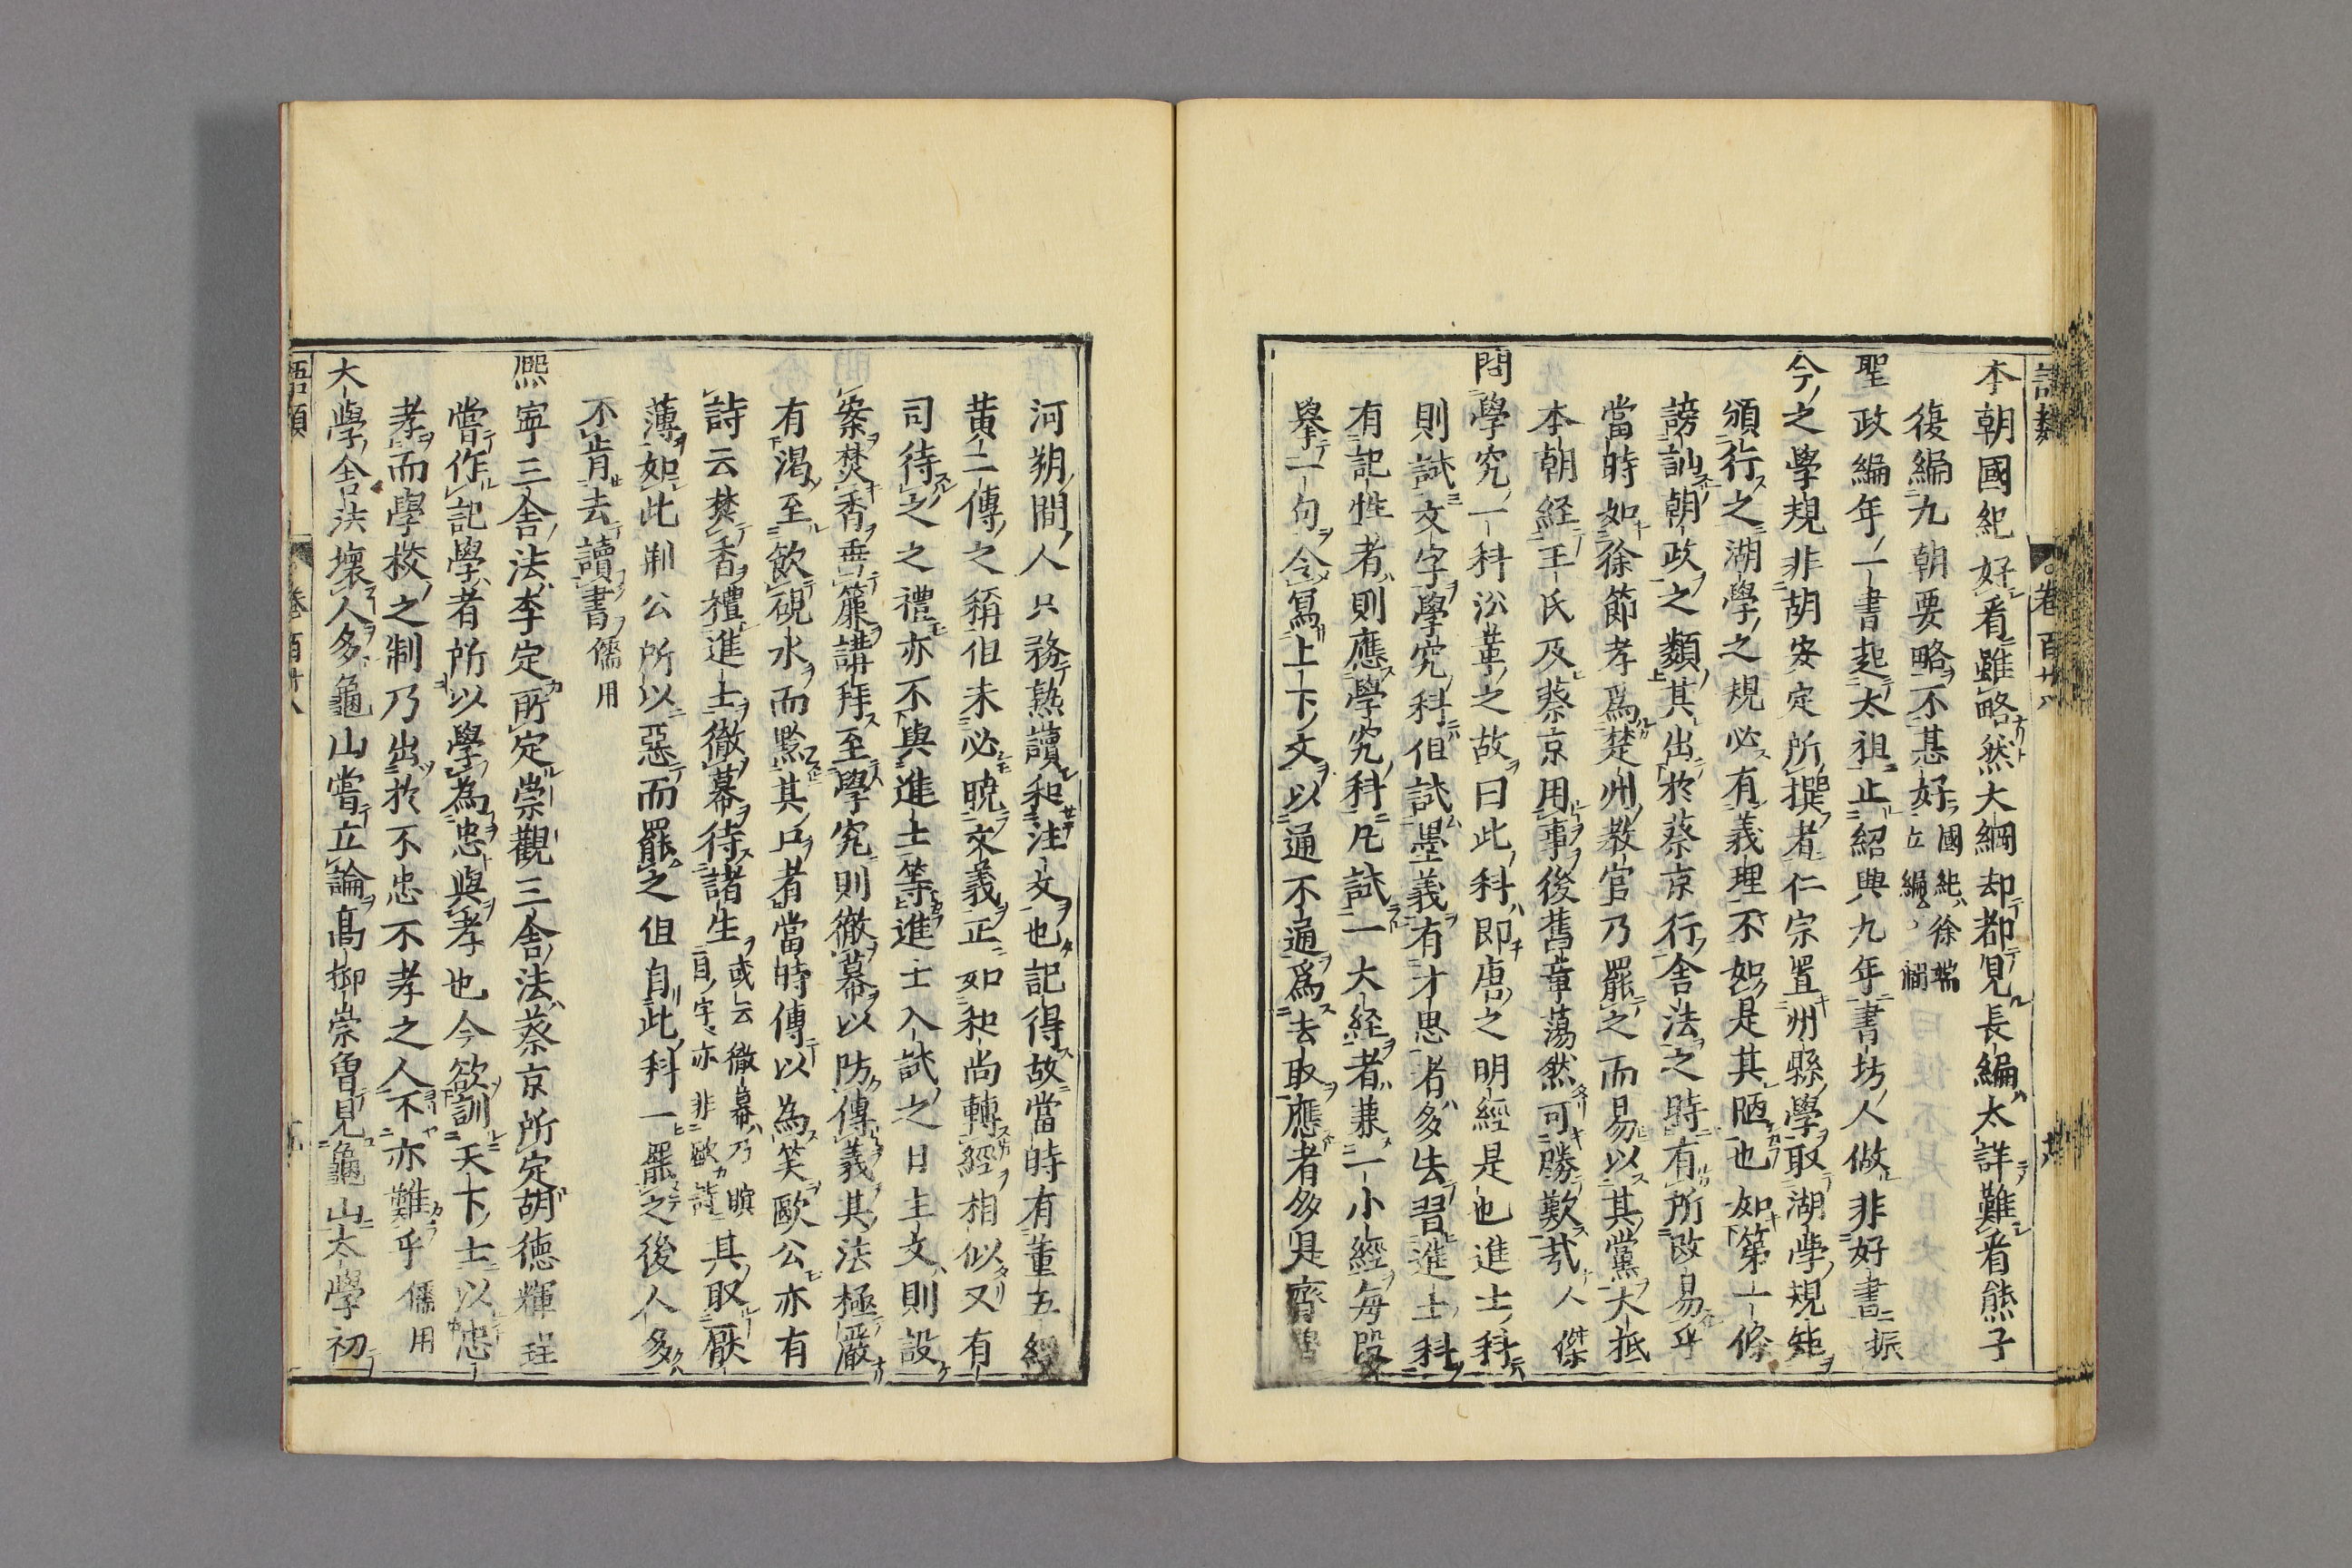 語類
卷百廿八
本朝國紀好看雖略然大綱却都見長編太詳難看熊子
復編九朝要略不甚好國紀徐端立編
聖政編年一書起太祖止紹興九年書坊人做非好書振
今之學規非胡安定所撰者仁宗置州縣學取湖學規矩
頒行之湖學之規必有義理不如是其陋也如第一條
謗訕朝政之類其出於蔡京行舍法之時有所改易乎
當時如徐節孝爲楚州教官乃罷之而易以其黨大抵
本朝經王氏及蔡京用事後舊章蕩然可勝歎哉人傑
問學究一科沿革之故曰此科即唐之明經是也進士科
則試文字學究科但試墨義有才思者多去習進士科
有記性者則應學究科凡試一大經者兼一小經每段
舉一句令寫上下文以通不通爲去取應者多是齊魯
河朔間人只務熟讀和注文也記得故當時有董五經
黃二傳之稱但未必曉文義正如和尚轉經相似又有
司待之之禮亦不與進士等進士入試之日主文則設
案焚香垂簾講拜至學究則徹幕以防傳義其法極嚴
有渴至飲硯水而黔其口者當時傳以為笑歐公亦有
詩云焚香禮進士徹幕待諸生或云徹幕乃瞋目字亦非歐詩其取厭
薄如此荆公所以惡而罷之但自此科一罷之後人多
不肯去讀書儒用
熙寧三舍法李定所定崇觀三舍法蔡京所定胡德輝珵
嘗作記學者所以學為忠與孝也今欲訓天下士以忠
孝而學校之制乃出於不忠不孝之人不亦難乎儒用
大學舍法壞人多龜山嘗立論高抑崇曾見龜山太學初
語類
卷百廿八